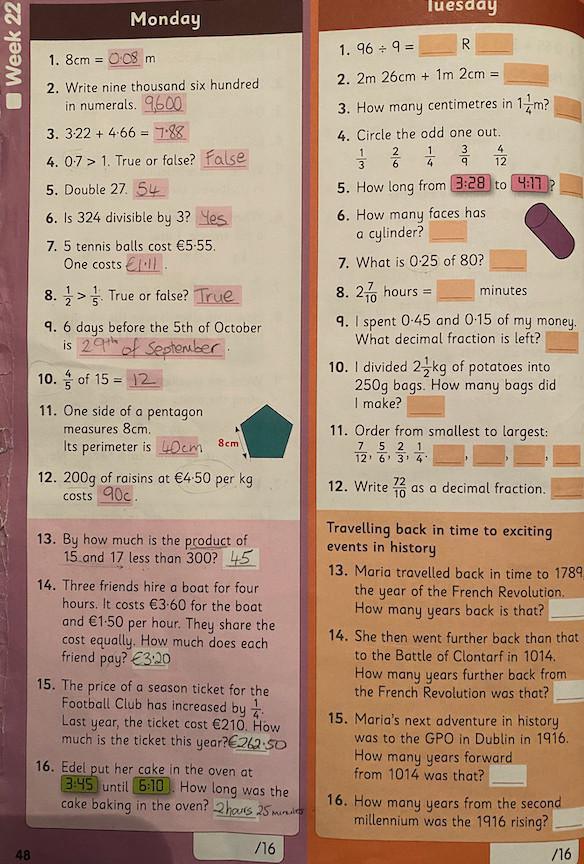 Week 22
Monday
1. 8cm = 0·08 m
2. Write nine thousand six hundred
in numerals. 9,600
3. 3·22 + 4·66 = 7·88
4. 0·7 > 1. True or false? False
5. Double 27. 54
6. Is 324 divisible by 3? Yes
7. 5 tennis balls cost €5·55.
One costs €1·11.
8. 1/2 > 1/5. True or false? True
9. 6 days before the 5th of October
is 29th of September.
10. 4/5 of 15 = 12
11. One side of a pentagon
measures 8cm.
Its perimeter is 40cm
8cm
12. 200g of raisins at €4·50 per kg
costs 90c.
13. By how much is the product of
15 and 17 less than 300? 45
14. Three friends hire a boat for four
hours. It costs €3·60 for the boat
and €1·50 per hour. They share the
cost equally. How much does each
friend pay? €3·20
15. The price of a season ticket for the
Football Club has increased by 1/4.
Last year, the ticket cost €210. How
much is the ticket this year? €262·50
16. Edel put her cake in the oven at
3:45 until 6:10. How long was the
cake baking in the oven? 2hours 25 minutes
/16
48
Tuesday
1. 96 ÷ 9 = R
2. 2m 26cm + 1m 2cm =
3. How many centimetres in 1 1/4m?
4. Circle the odd one out.
1/3 2/6 1/4 3/9 4/12
5. How long from 3:28 to 4:17?
6. How many faces has
a cylinder?
7. What is 0·25 of 80?
8. 2 7/10 hours = minutes
9. I spent 0·45 and 0·15 of my money.
What decimal fraction is left?
10. I divided 2 1/2kg of potatoes into
250g bags. How many bags did
I make?
11. Order from smallest to largest:
7/12, 5/6, 2/3, 1/4. , , ,
12. Write 72/10 as a decimal fraction.
Travelling back in time to exciting
events in history
13. Maria travelled back in time to 1789
the year of the French Revolution.
How many years back is that?
14. She then went further back than that
to the Battle of Clontarf in 1014.
How many years further back from
the French Revolution was that?
15. Maria's next adventure in history
was to the GPO in Dublin in 1916.
How many years forward
from 1014 was that?
16. How many years from the second
millennium was the 1916 rising?
/16